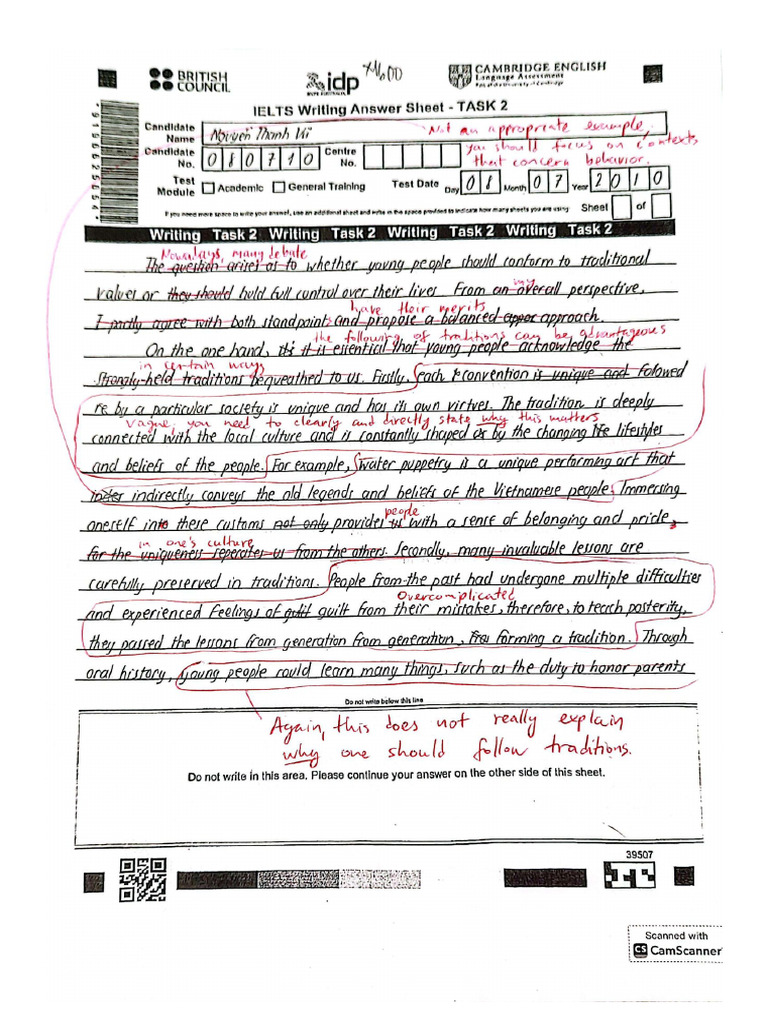 BRITISH COUNCIL
idp
CAMBRIDGE ENGLISH
Language Assessment
Part of the University of Cambridge
IELTS Writing Answer Sheet - TASK 2
Candidate Name
Not an appropriate example.
Candidate No. 0 8 0 7 1 0
Centre No.
you should focus on contexts
that concern behavior.
Test Module
Academic
General Training
Test Date Day 0 8 Month 0 7 Year 2 0 1 0
If you need more space to write your answer, use an additional sheet and write in the space provided to indicate how many sheets you are using:
Sheet of
Writing Task 2 Writing Task 2 Writing Task 2 Writing Task 2
Nowadays, many debate
The question arises as to whether young people should conform to traditional
my
values or they should hold full control over their lives. From an overall perspective,
have their merits
I partly agree with both standpoints and propose a balanced approach.
the following of traditions can be advantageous
On the one hand, it is essential that young people acknowledge the
in certain ways
strongly-held traditions bequeathed to us. Firstly, each convention is unique and followed
by a particular society is unique and has its own virtues. The tradition is deeply
Vague. you need to clearly and directly state why this matters
connected with the local culture and is constantly shaped by the changing lifestyles
and beliefs of the people. For example, water puppetry is a unique performing art that
indirectly conveys the old legends and beliefs of the Vietnamese people. Immersing
people
oneself into these customs not only provides us with a sense of belonging and pride,
in one's culture
for the uniqueness seperates us from the others. Secondly, many invaluable lessons are
carefully preserved in traditions. People from the past had undergone multiple difficulties
Overcomplicated
and experienced feelings of guilt guilt from their mistakes, therefore, to teach posterity,
they passed the lessons from generation from generation, forming a tradition. Through
oral history, young people could learn many things, such as the duty to honor parents
Do not write below this line
Again, this does not really explain
why one should follow traditions.
Do not write in this area. Please continue your answer on the other side of this sheet.
39507
Scanned with
CS CamScanner